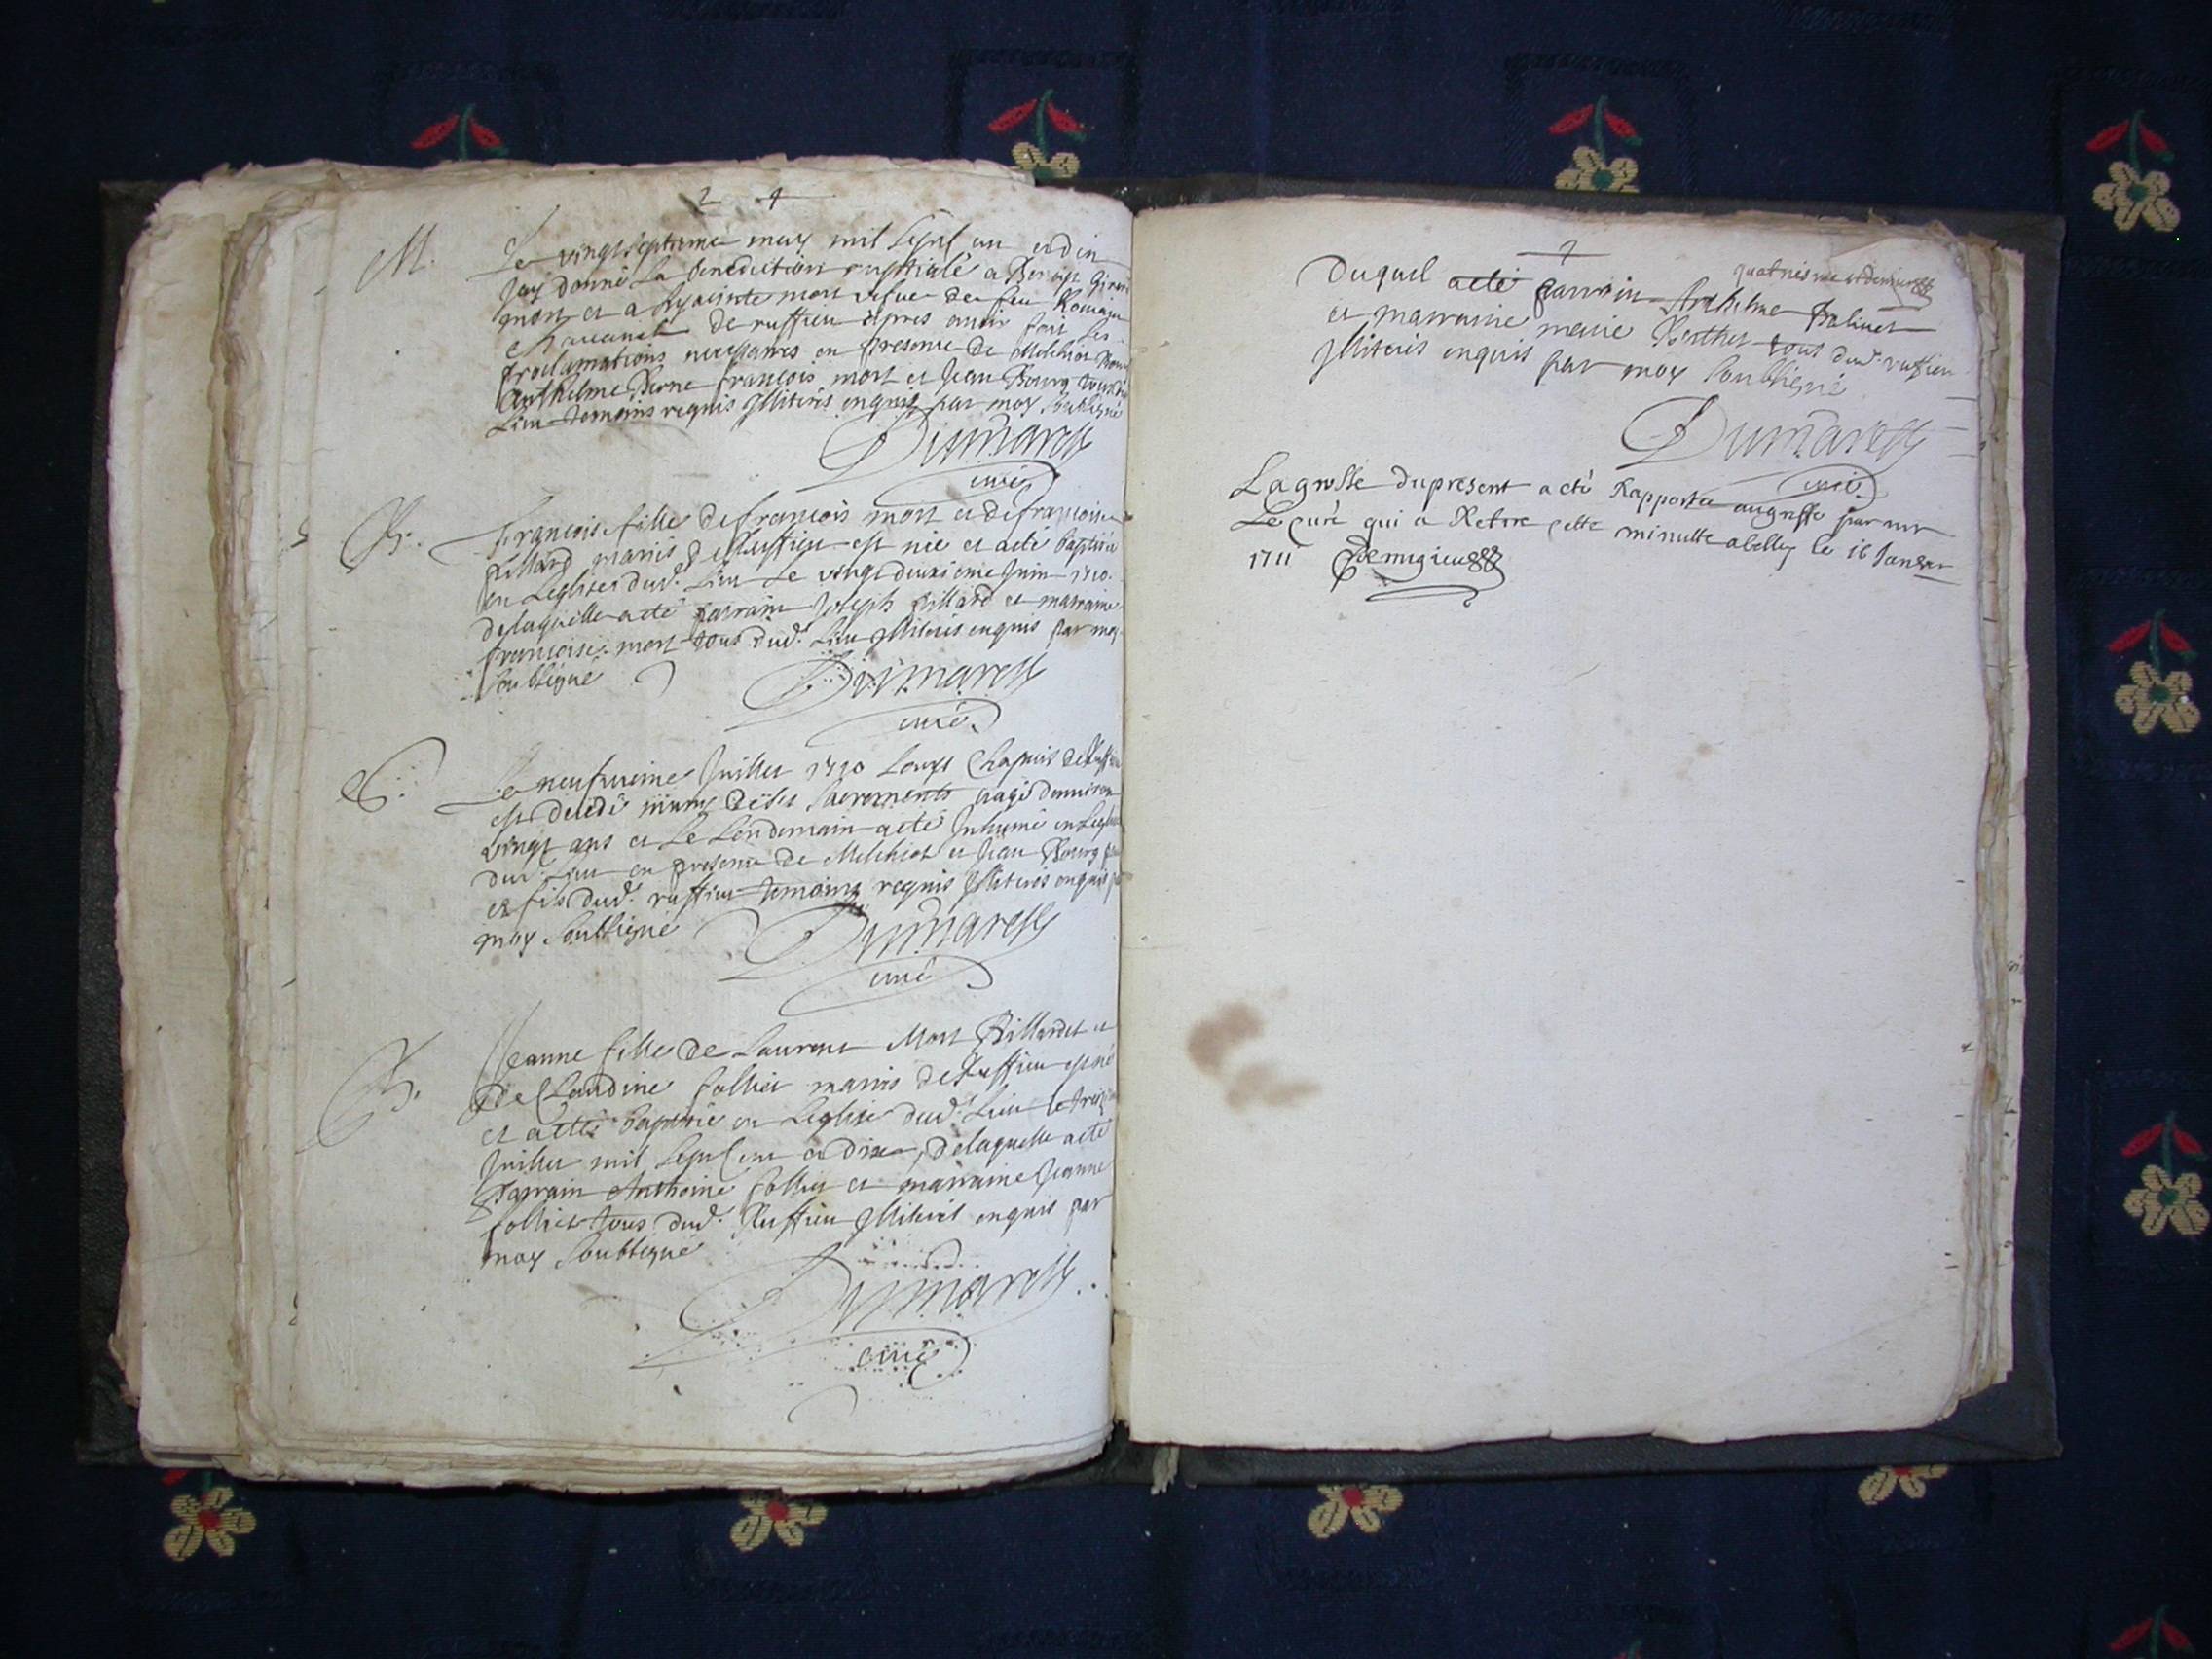 2
M.
Le vingt septieme may mil sept cen et dix
jay donné la benediction nuptiale a Benoist
mort et a hyacinte mort vefue de feu Romain
de ruffieu apres avoir fait les
proclamations necessaires en presence de Melchiot
Anthelme Berne françois mort et Jean Bourg
Lieu temoins requis illiterés enquis par moy soubsigné
Dumarest
curé
B.
françoise fille de françois mort et de françoise
fillard mariés de Ruffieu est née et a eté baptisée
en Leglise dud. Lieu Le vingt deuxieme Juin 1710.
de laquelle a eté parrain Joseph fillard et marraine
françoise mort tous dud. Lieu illiterés enquis par moy
soubsigné
Dumarest
curé
Le neufvieme Juillet 1710 Louys Chapuis de Ruffieu
est decedé muny de ses sacrements eagé denviron
vingt ans et Le Lendemain a eté Inhumé en Leglise
dud. Lieu en presence de Melchiot et Jean Bourg
et fils dud. ruffieu temoins requis illiterés enquis
moy soubsigné
Dumarest
curé
B.
Jeanne fille de Laurent Mort Billardet et
de Claudine folliet mariés de Ruffieu est née
et a etté baptisée en Leglise dud. Lieu le
Juillet mil sept cent et dix, de laquelle a eté
Parrain Anthoine folliet et marraine Jeanne
folliet tous dud. Ruffieu illiterés enquis par
moy soubsigné
Dumarest
curé
quatriesme et dernier
Duquel a eté parrain Anthelme
et marraine marie Berthet tous dud. ruffieu
illiterés enquis par moy soubsigné
Dumarest
curé
La grosse du present acte Rapportée au greffe par mr
Le curé qui a Retiré cette minutte a belley le 16 Janvier
1711